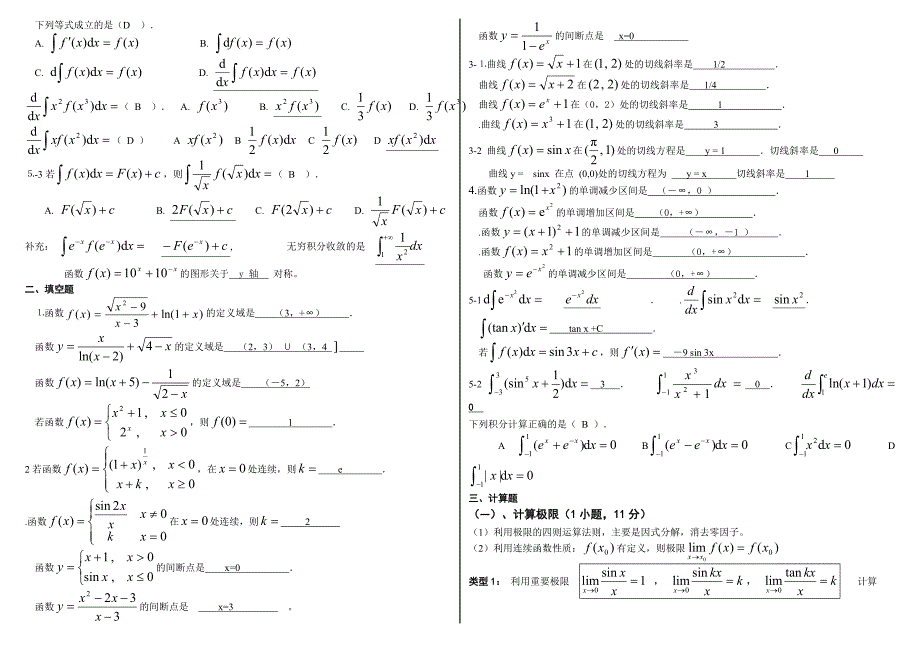 下列等式成立的是（D ）．
A. ∫f′(x)dx = f(x)　B. ∫df(x) = f(x)
C. d∫f(x)dx = f(x)　D. d/dx ∫f(x)dx = f(x)
d/dx ∫x²f(x³)dx =（ B ）. A. f(x³)　B. x²f(x³)　C. 1/3 f(x)　D. 1/3 f(x³)
d/dx ∫xf(x²)dx =（ D ）　A xf(x²)　B 1/2 f(x)dx　C 1/2 f(x)　D xf(x²)dx
5.-3 若∫f(x)dx = F(x) + c，则∫1/√x f(√x)dx =（ B ）．
A. F(√x) + c　B. 2F(√x) + c　C. F(2√x) + c　D. 1/√x F(√x) + c
补充：∫e⁻ˣf(e⁻ˣ)dx = −F(e⁻ˣ) + c，　无穷积分收敛的是 ∫₁^{+∞} 1/x² dx
函数 f(x) = 10ˣ + 10⁻ˣ 的图形关于 y 轴 对称。
二、填空题
1.函数 f(x) = √(x² − 9)/(x − 3) + ln(1 + x) 的定义域是 （3，+∞） ．
函数 y = x/ln(x − 2) + √(4 − x) 的定义域是 （2，3） ∪ （3，4 ]
函数 f(x) = ln(x + 5) − 1/√(2 − x) 的定义域是 （－5，2）
若函数 f(x) = { x² + 1, x ≤ 0; 2ˣ, x > 0，则 f(0) = 1 ．
2若函数 f(x) = { (1 + x)^{1/x}, x < 0; x + k, x ≥ 0，在 x = 0 处连续，则 k = e ．
.函数 f(x) = { sin 2x/x x ≠ 0; k x = 0 在 x = 0 处连续，则 k = 2
函数 y = { x + 1, x > 0; sin x, x ≤ 0 的间断点是 x=0 ．
函数 y = (x² − 2x − 3)/(x − 3) 的间断点是 x=3 ，
函数 y = 1/(1 − eˣ) 的间断点是 x=0
3- 1.曲线 f(x) = √x + 1 在 (1, 2) 处的切线斜率是 1/2 ．
曲线 f(x) = √(x + 2) 在 (2, 2) 处的切线斜率是 1/4
曲线 f(x) = eˣ + 1 在（0，2）处的切线斜率是 1 ．
.曲线 f(x) = x³ + 1 在 (1, 2) 处的切线斜率是 3 ．
3-2 曲线 f(x) = sin x 在 (π/2, 1) 处的切线方程是 y = 1 ．切线斜率是 0
曲线 y = sinx 在点 (0,0)处的切线方程为 y = x 切线斜率是 1
4.函数 y = ln(1 + x²) 的单调减少区间是 （－∞，0 ） ．
函数 f(x) = e^{x²} 的单调增加区间是 （0，+∞） ．
.函数 y = (x + 1)² + 1 的单调减少区间是 （－∞，－1 ） ．
.函数 f(x) = x² + 1 的单调增加区间是 （0，+∞） ．
函数 y = e^{−x²} 的单调减少区间是 （0，+∞） ．
5-1 d∫e^{−x²}dx = e^{−x²}dx ．　. d/dx ∫sin x²dx = sin x² ．
∫(tan x)′dx = tan x +C ．
若 ∫f(x)dx = sin 3x + c，则 f′(x) = －9 sin 3x ．
5-2 ∫₋₃³ (sin⁵x + 1/2)dx = 3 ．　∫₋₁¹ x³/(x² + 1) dx = 0 ．　d/dx ∫₁ᵉ ln(x + 1)dx =
0
下列积分计算正确的是（ B ）．
A ∫₋₁¹ (eˣ + e⁻ˣ)dx = 0　B ∫₋₁¹ (eˣ − e⁻ˣ)dx = 0　C ∫₋₁¹ x²dx = 0　D
∫₋₁¹ | x |dx = 0
三、计算题
（一）、计算极限（1 小题，11 分）
（1）利用极限的四则运算法则，主要是因式分解，消去零因子。
（2）利用连续函数性质：f(x₀) 有定义，则极限 lim_{x→x₀} f(x) = f(x₀)
类型 1： 利用重要极限 lim_{x→0} sin x/x = 1 ， lim_{x→0} sin kx/x = k ， lim_{x→0} tan kx/x = k　计算